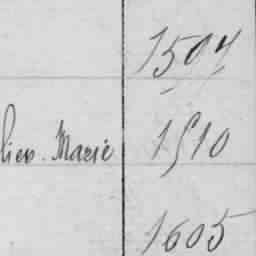 1504
lien. Marie 1510
1605